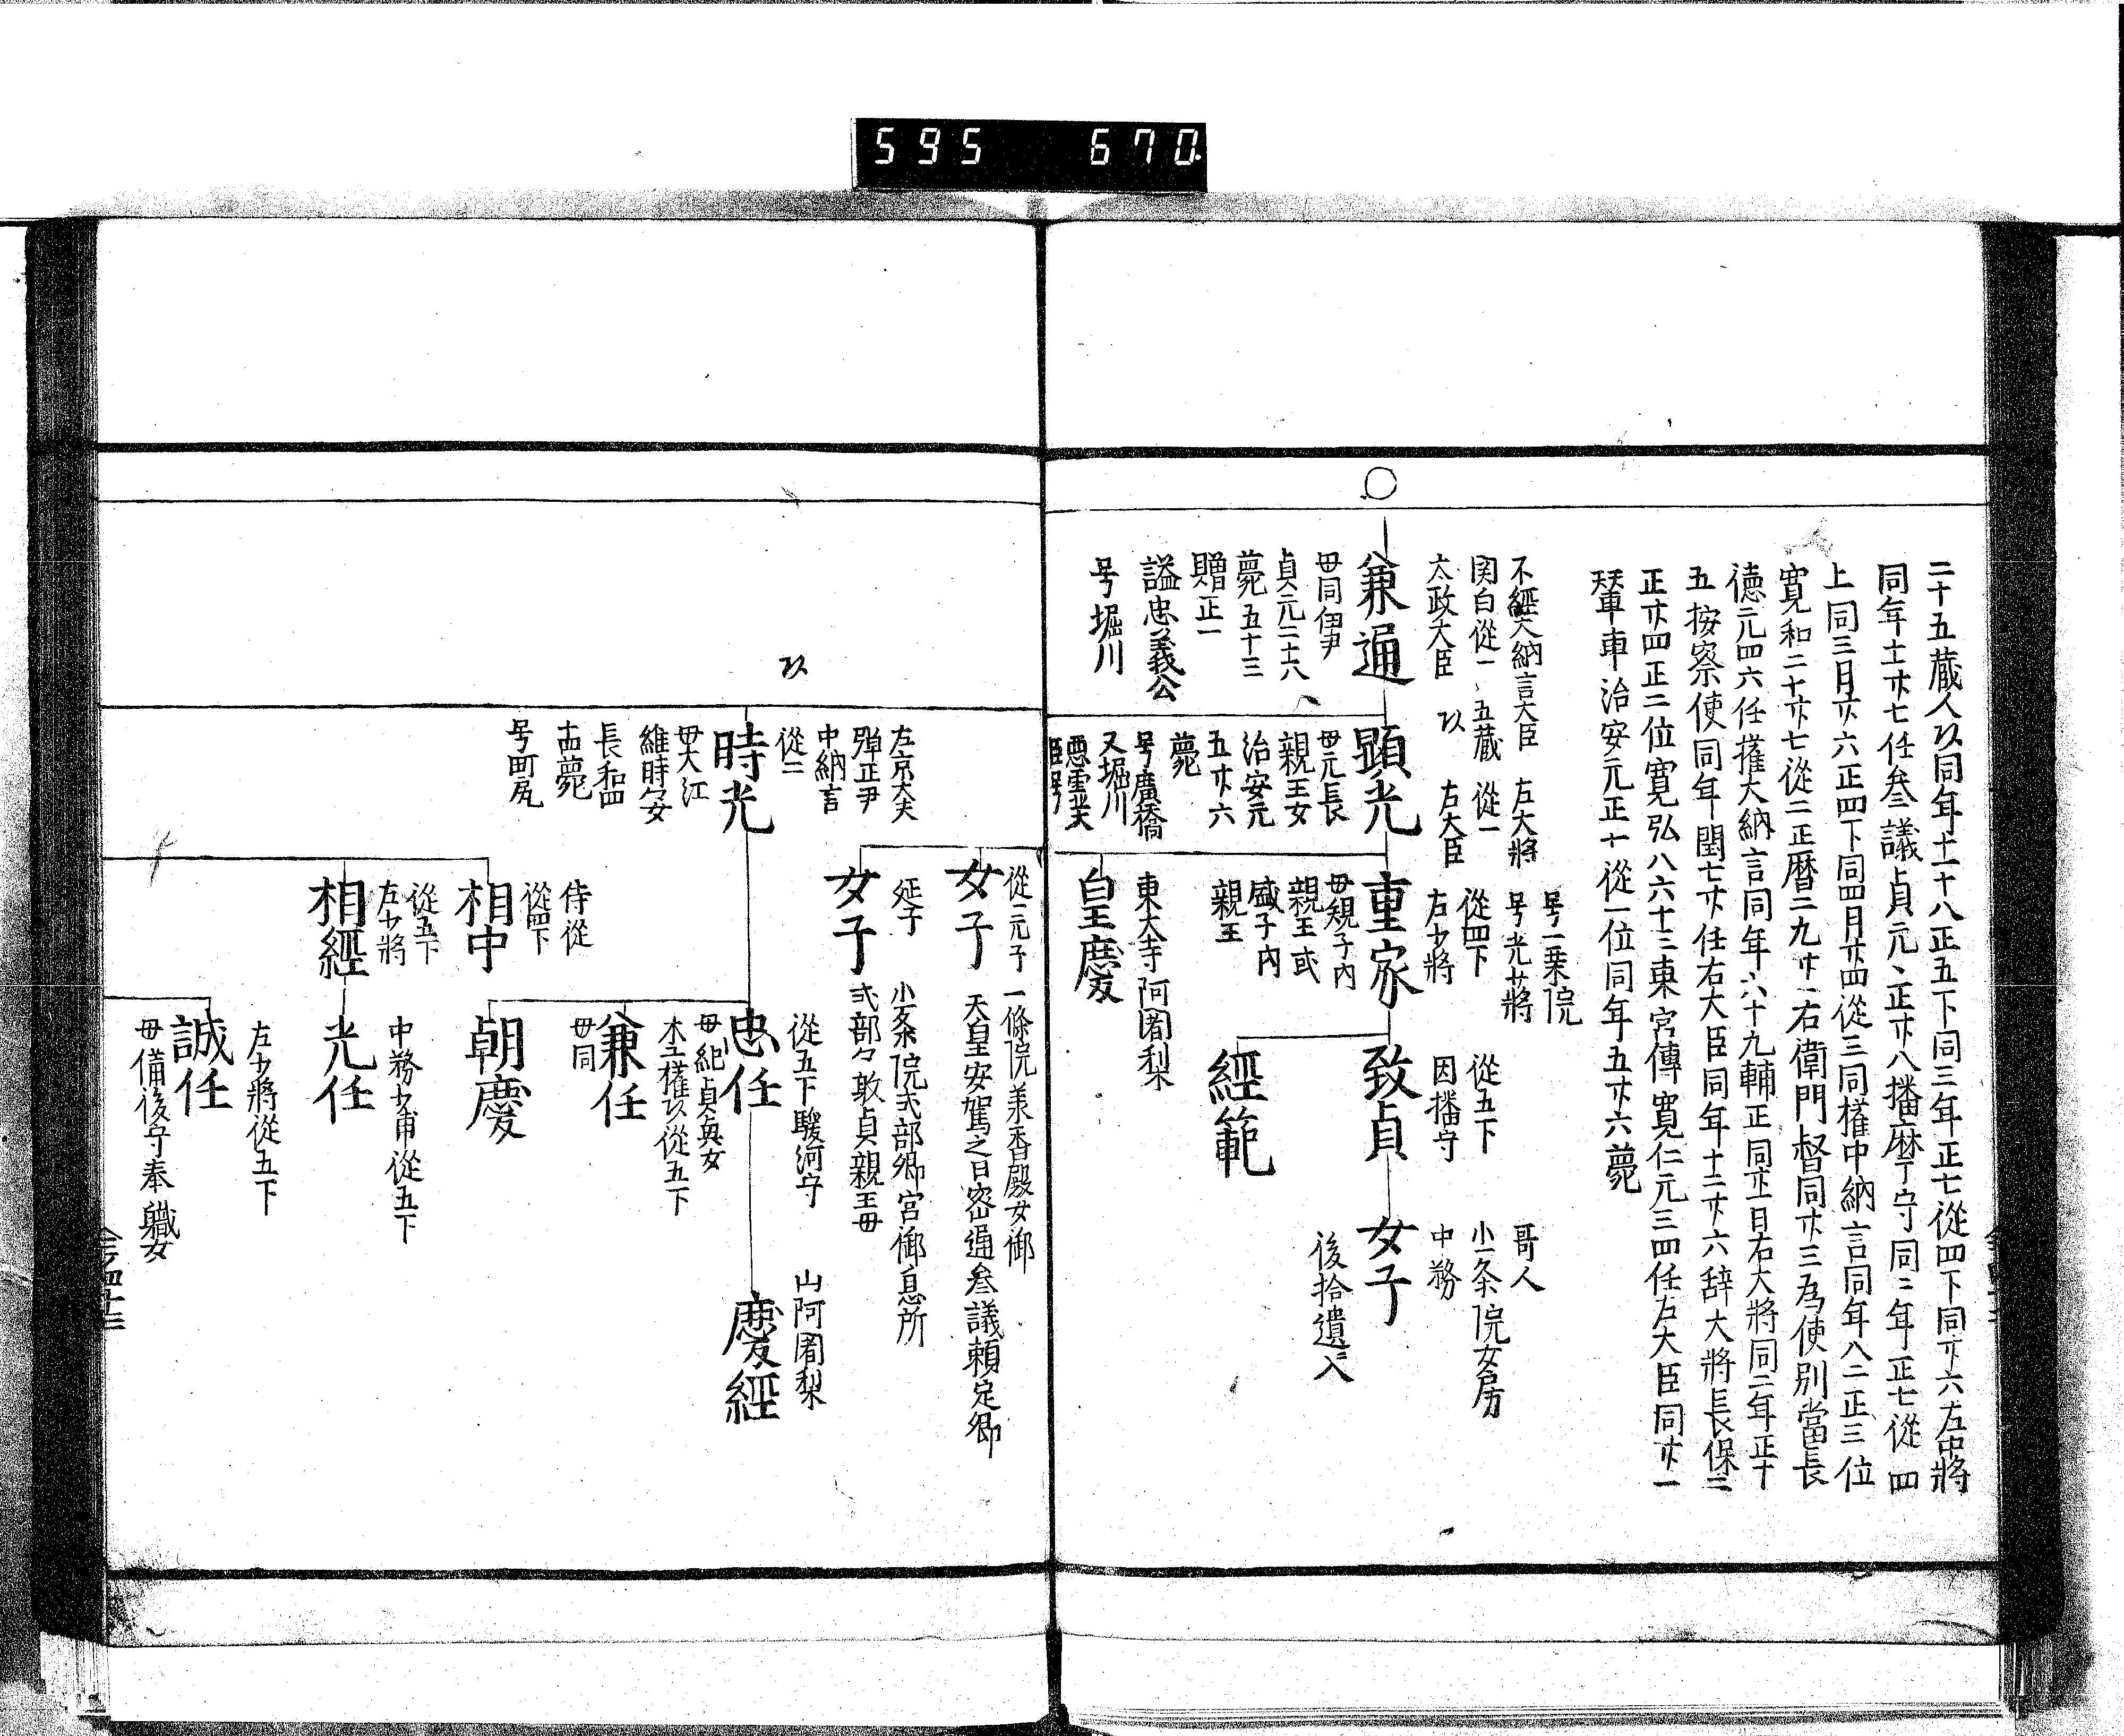 595 670
二十五蔵人以同年十一十八正五下同三年正七従四下同廿六左中將
同年十一廿七任叅議貞元二正廿八播磨守同二年正七從四
上同三月廿六正四下同四月廿四從三同權中納言同年八二正三位
寛和二十廿七從二正暦二九廿一右衛門督同廿三為使別當長
德元四六任權大納言同年六十九輔正同廿一日右大將同二年正十
五按察使同年閏七廿任右大臣同年十二廿六辞大將長保二
正廿四正二位寛弘八六十三東宮傅寛仁元三四任左大臣同廿一
輦車治安元正十從一位同年五廿六薨
不經大納言大臣
関白從一 五蔵
太政大臣 以
兼通
母同伊尹
貞元二十一八
薨五十三
贈正一
謚忠義公
号堀川
左大將
從一
左大臣
顕光
母元長
親王女
治安元
五廿六
薨
号廣橋
又堀川
悪霊大
臣号
号一乗院
号光少將
從四下
右少將
重家
母規子内
親王或
盛子内
親王
從五下
因播守
致貞
哥人
小一条院女房
中務
女子
後拾遺入
經範
東大寺阿闍梨
皇慶
從二元子 一條院羕香殿女御
天皇安駕之日密通叅議頼定卿
女子
延子 小一条院式部卿宮御息所
女子 式部々敦貞親王母
左京大夫
弾正尹
中納言
從二
以
時光
母大江
維時女
長和四
十四薨
号町尻
從五下駿河守
忠任
母紀貞輿女
山阿闍梨
慶經
木工權以從五下
兼任
母同
朝慶
侍從
從四下
相中
從五下
左少將
相經
中務少甫從五下
光任
左少將從五下
誠任
母備後守奉職女